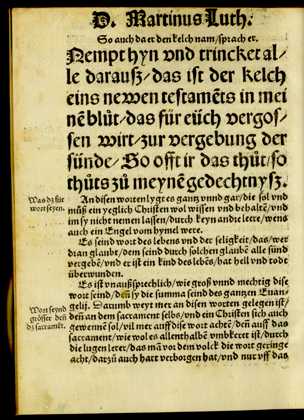 D. Martinus Luth.
So auch da er den kelch nam/sprach er.
Nempt hyn vnd trincket al/
le darauſz/das iſt der kelch
eins newen teſtamēts in mei
nē blůt/das für eüch vergoſ/
ſen wirt/zur vergebung der
ſünde/So offt ir das thůt/ſo
thůts zů meynē gedechtnyſz.
Was dz für
wort ſeyen.
An diſen worten lygt es gantz vnnd gar/die ſol vnd
můſz ein yeglich Chriſten wol wiſſen vnd behaltē/vnd
im ſy nicht nemen laſſen/durch keyn ander leere/wens
auch ein Engel vom hymel were.
Es ſeind wort des lebens vnd der ſeligkeit/das/wer
dran glaubt/dem ſeind durch ſolchen glaubē alle ſünd
vergebē/vnd er iſt ein kind des lebēs/hat hell vnd tode
überwunden.
Es iſt vnauſzſprechlich/wie groſz vnnd mechtig diſe
wort ſeind/den ſy die ſumma ſeind des gantzen Euan/
gelij. Darumb weyt mer an diſen worten gelegen iſt/
Wort ſeynd
gröſſer deñ
dz ſacramēt.
deñ an dem ſacrament ſelbs/vnd ein Chriſten ſich auch
gewenē ſol/vil mer auff diſe wort achtē/deñ auff das
ſacrament/wie wol es allenthalbē vmbkeret iſt/durch
die lugen lerer/das mā vor dem volck die wort geringe
acht/darzů auch hart verborgen hat/vnd nur vff das